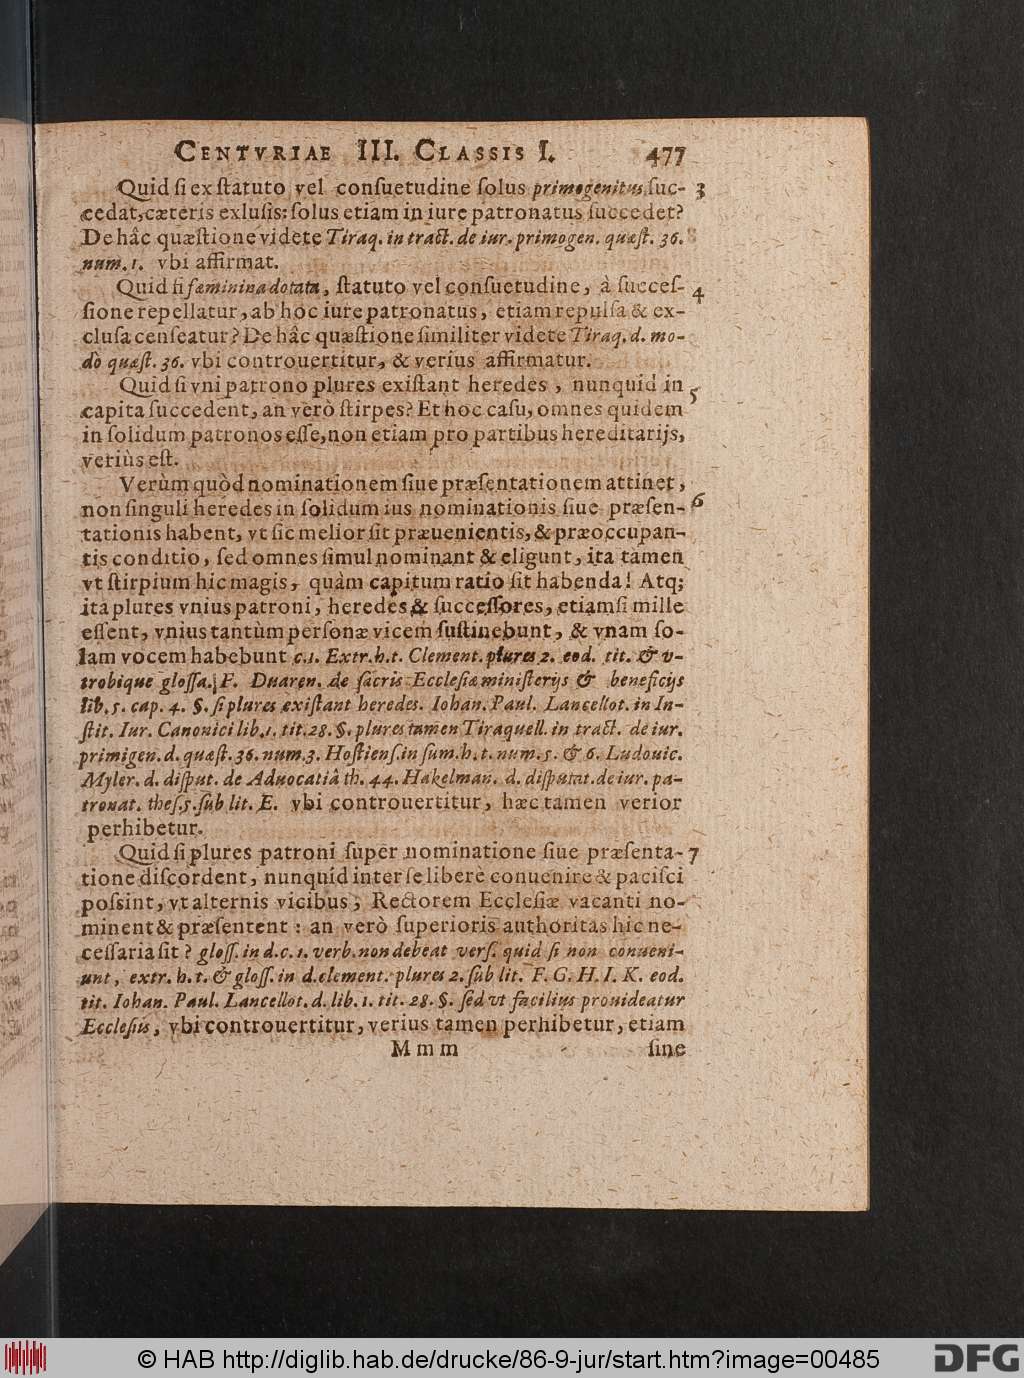 CENTVRIAE III. CLASSIS I. 477
Quid ſi ex ſtatuto vel conſuetudine ſolus primogenitus ſuc- 3
cedat, cæteris exluſis: ſolus etiam in iure patronatus ſuccedet?
De hâc quæſtione videte Tiraq. in tract. de iur. primogen. quæſt. 36.
num. 1. vbi affirmat.
Quid ſi fæminina dotata, ſtatuto vel conſuetudine, à ſucceſ- 4
ſione repellatur, ab hoc iure patronatus, etiam repulſa & ex-
cluſa cenſeatur? De hâc quæſtione ſimiliter videte Tiraq. d. mo-
dò quæſt. 36. vbi controuertitur, & verius affirmatur.
Quid ſi vni patrono plures exiſtant heredes, nunquid in 5
capita ſuccedent, an verò ſtirpes? Et hoc caſu, omnes quidem
in ſolidum patronos eſſe, non etiam pro partibus hereditarijs,
veriùs eſt.
Verùm quòd nominationem ſiue præſentationem attinet,
non ſinguli heredes in ſolidum ius nominationis ſiue præſen- 6
tationis habent, vt ſic melior ſit præuenientis, & præoccupan-
tis conditio, ſed omnes ſimul nominant & eligunt, ita tamen
vt ſtirpium hic magis, quàm capitum ratio ſit habenda! Atq;
ita plures vnius patroni, heredes & ſucceſſores, etiamſi mille
eſſent, vnius tantùm perſonæ vicem ſuſtinebunt, & vnam ſo-
lam vocem habebunt c. 1. Extr. h. t. Clement. plures 2. eod. tit. & v-
trobique gloſſa. F. Duaren. de ſacris Eccleſiæ miniſterijs & beneficijs
lib. 5. cap. 4. §. ſi plures exiſtant heredes. Iohan. Paul. Lancellot. in In-
ſtit. Iur. Canonici lib. 1. tit. 28. §. plures tamen Tiraquell. in tract. de iur.
primigen. d. quæſt. 36. num. 3. Hoſtienſ. in ſum. h. t. num. 5. & 6. Ludouic.
Myler. d. diſput. de Aduocatiâ th. 44. Hakelman. d. diſputat. de iur. pa-
tronat. theſ. 5. ſub lit. E. vbi controuertitur, hæc tamen verior
perhibetur.
Quid ſi plures patroni ſuper nominatione ſiue præſenta- 7
tione diſcordent, nunquid inter ſe liberè conuenire & paciſci
poſsint, vt alternis vicibus, Rectorem Eccleſiæ vacanti no-
minent & præſentent: an verò ſuperioris authoritas hic ne-
ceſſaria ſit? gloſſ. in d. c. 1. verb. non debeat verſ. quid ſi non conueni-
unt, extr. h. t. & gloſſ. in d. clement. plures 2. ſub lit. F. G. H. I. K. eod.
tit. Iohan. Paul. Lancellot. d. lib. 1. tit. 28. §. ſed vt facilius prouideatur
Eccleſiis, vbi controuertitur, verius tamen perhibetur, etiam
M m m ſine
© HAB http://diglib.hab.de/drucke/86-9-jur/start.htm?image=00485
DFG